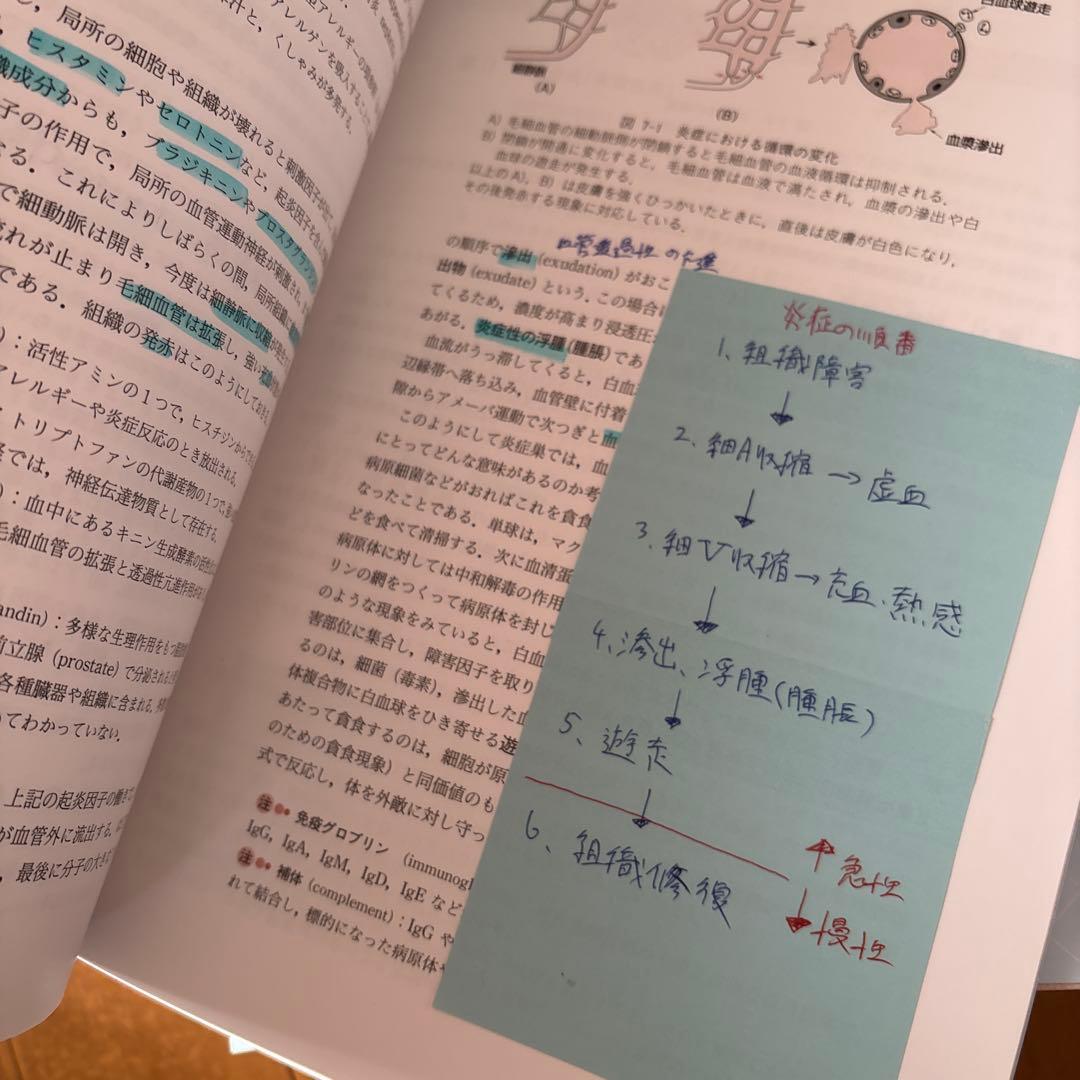 アレルゲンを吸入する
汁と，くしゃみが多発する．
，局所の細胞や組織が壊れると刺激因子が
ヒスタミンやセロトニンなど，起炎因子を
成分からも，ブラジキニンやプロスタグラン
子の作用で，局所の血管運動神経が刺激され，
る．これによりしばらくの間，局所組織に
で細動脈は開き，今度は細静脈に収縮が
流れが止まり毛細血管は拡張し，強い
である．組織の発赤はこのようにしておき
）：活性アミンの１つで，ヒスチジンから
アレルギーや炎症反応のとき放出される．
トリプトファンの代謝産物の１つで，
では，神経伝達物質として存在する．
）：血中にあるキニン生成酵素の
毛細血管の拡張と透過性亢進作用が
andin）：多様な生理作用をもつ
前立腺（prostate）で分泌される
各種臓器や組織に含まれる．
ってわかっていない．
上記の起炎因子の働きで
が血管外に流出する．
，最後に分子の大き
細静脈
（A）
（B）
白血球遊走
血漿滲出
図 7-1 炎症における循環の変化
A）毛細血管の細動脈側が閉鎖すると毛細血管の血液循環は抑制される．
B）閉鎖が開通に変化すると，毛細血管は血液で満たされ，血漿の滲出や白
血球の遊走が発生する．
以上のA），B）は皮膚を強くひっかいたときに，直後は皮膚が白色になり，
その後発赤する現象に対応している．
血管透過性の亢進
の順序で滲出（exudation）がおこ
出物（exudate）という．この場合
てくるため，濃度が高まり浸透圧
あがる．炎症性の浮腫（腫脹）であ
血流がうっ滞してくると，白血
辺縁帯へ落ち込み，血管壁に付着
隙からアメーバ運動で次つぎと血
このようにして炎症巣では，血
にとってどんな意味があるのか考
病原細菌などがおればこれを貪食
なったことである．単球は，マク
どを食べて清掃する．次に血清蛋
病原体に対しては中和解毒の作用
リンの網をつくって病原体を封じ
のような現象をみていると，白血
害部位に集合し，障害因子を取り
るのは，細菌（毒素），滲出した血
体複合物に白血球をひき寄せる遊
あたって貪食するのは，細胞が原
のための貪食現象）と同価値のも
式で反応し，体を外敵に対し守っ
注 免疫グロブリン（immunogl
IgG, IgA, IgM, IgD, IgE など
注 補体（complement）：IgG や
れて結合し，標的になった病原体
炎症の順番
1、組織障害
↓
2、細A収縮 → 虚血
↓
3、細V収縮 → 充血、熱感
↓
4、滲出、浮腫(腫脹)
↓
5、遊走
↓
6、組織修復
↑急性
↓慢性